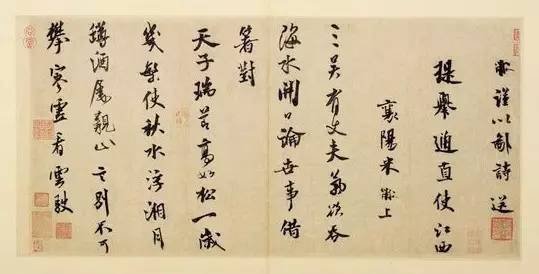 黻謹以鄙詩送
提舉通直使江西
襄陽米黻上
三吳有丈夫氣欲吞
海水開口論世事借
箸對
天子瑞高如松一歲
幾繁使秋水浮湘月
罇酒屬言別不可
攀寒雲看雲駛